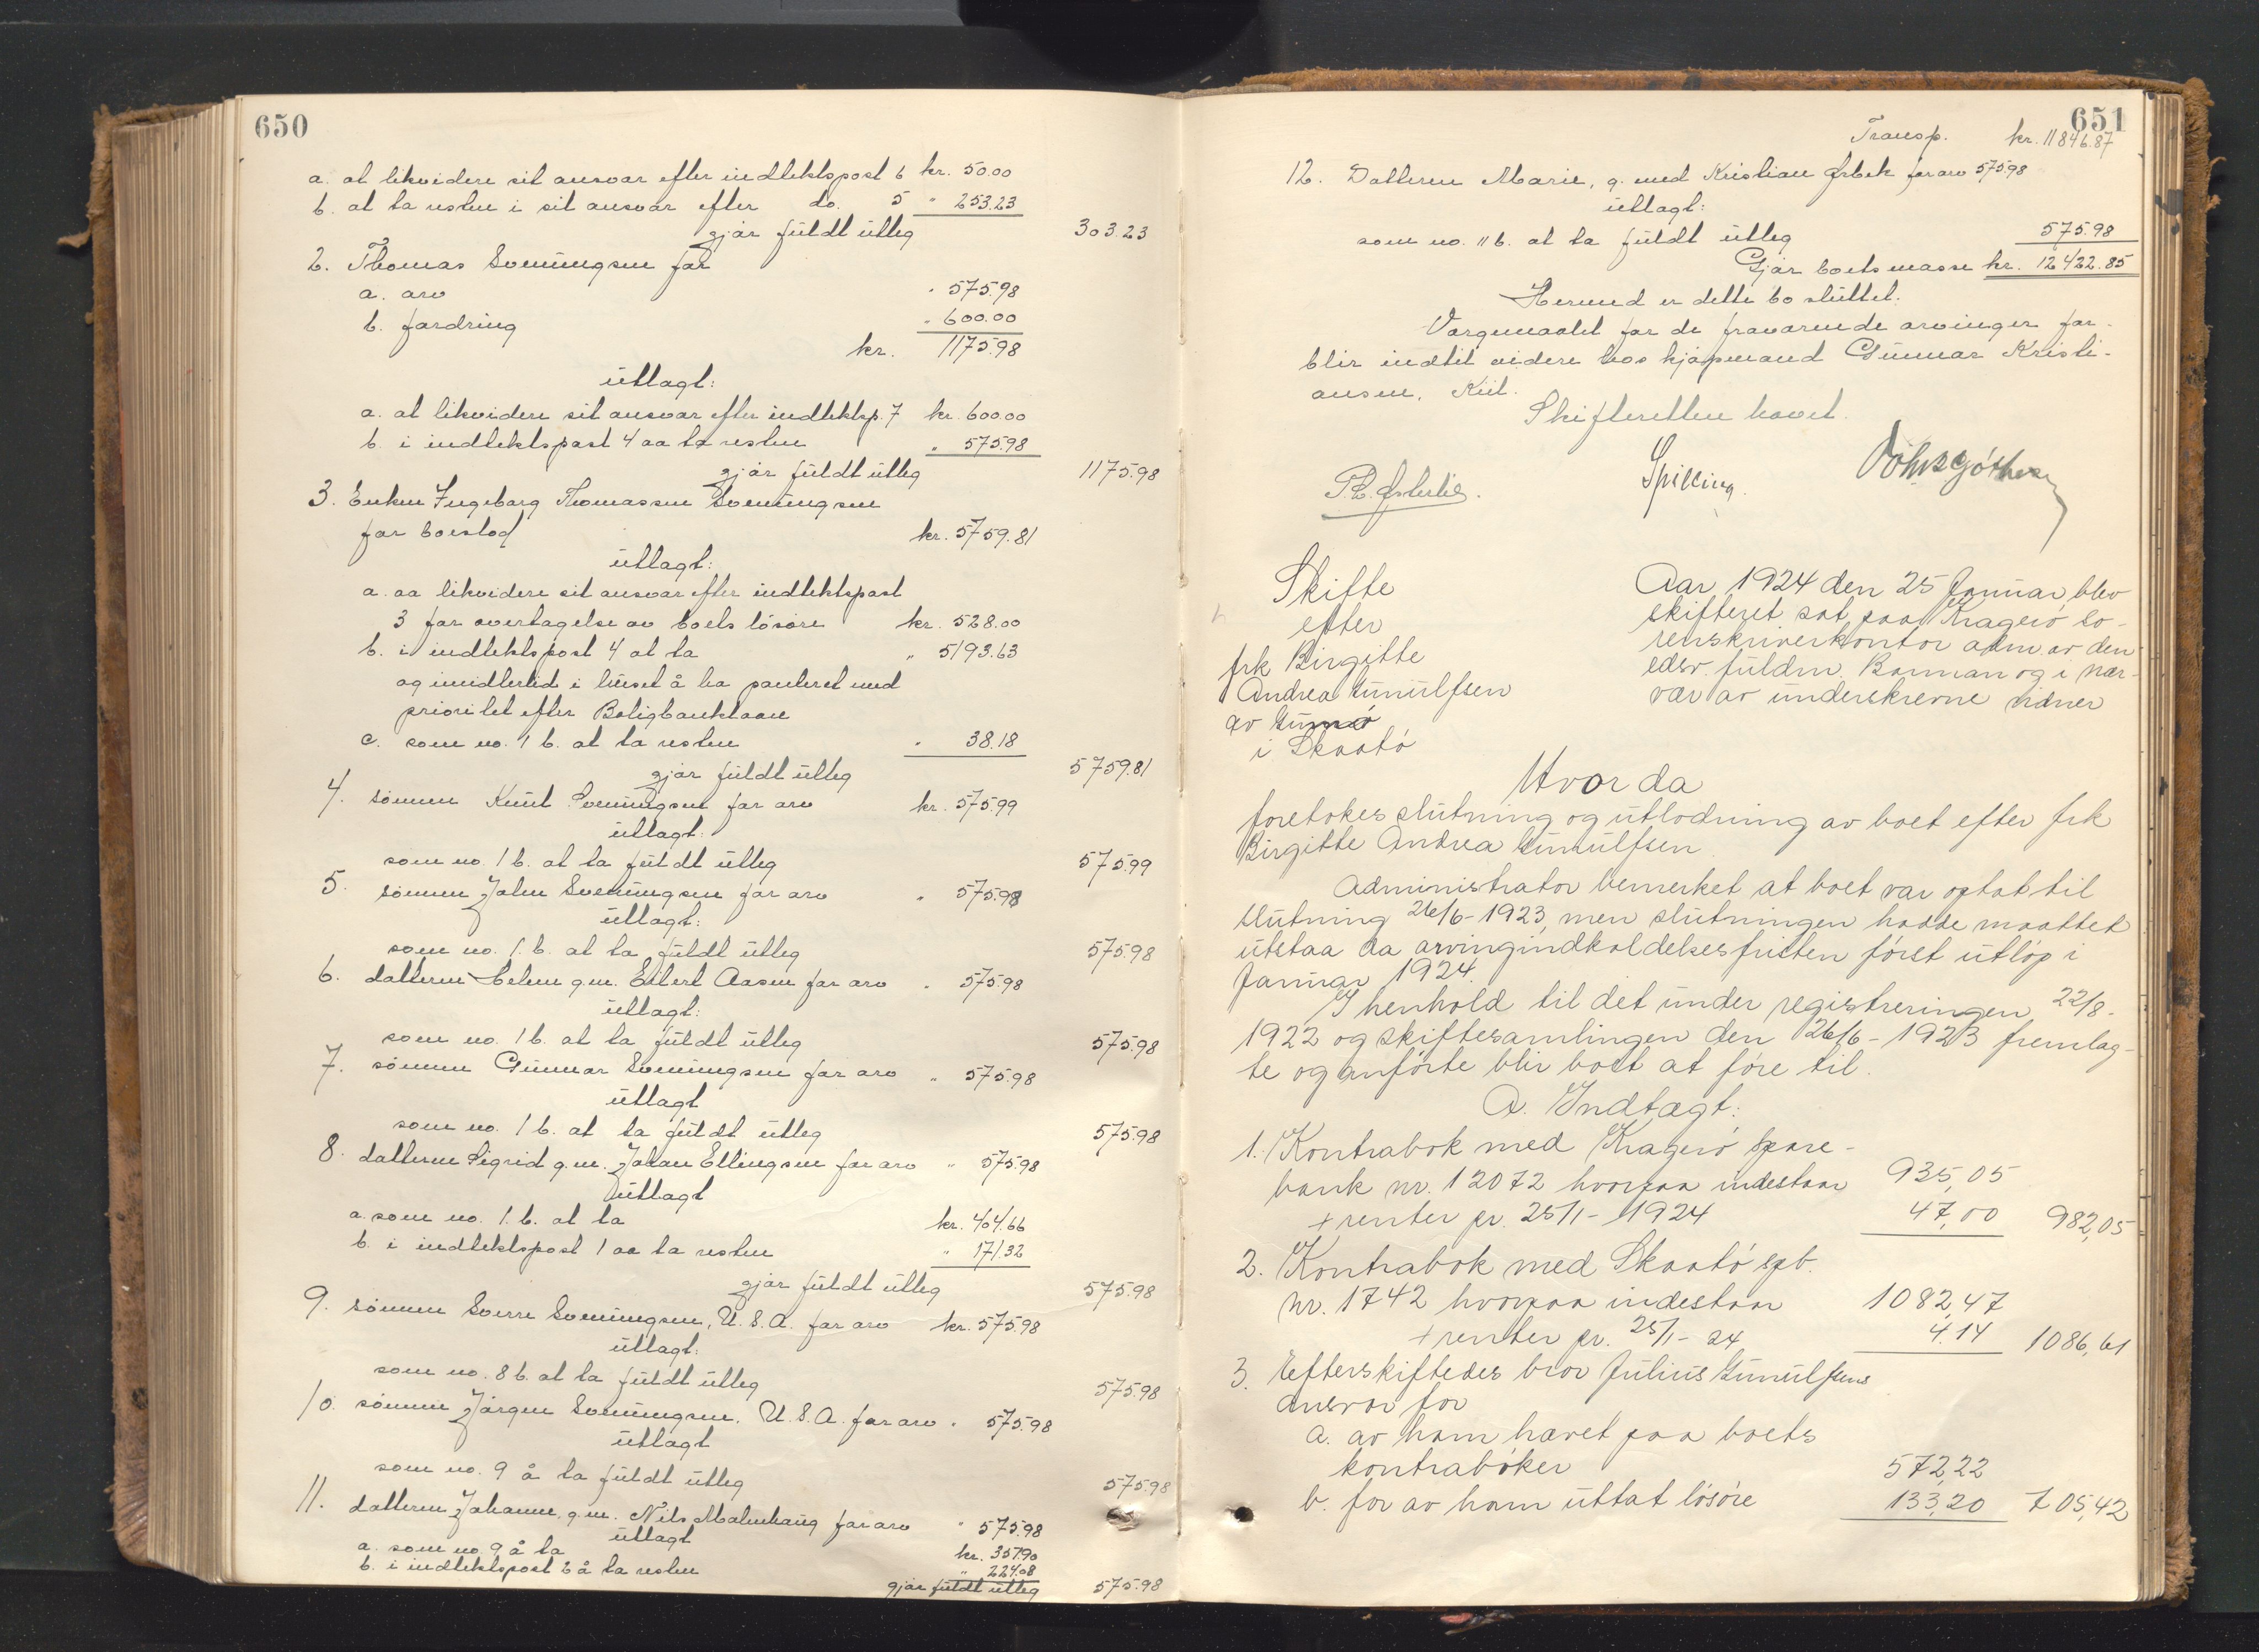 650
a. at likvidere sit ansvar efter indtektspost 6 kr. 50.00
b. at ta resten i sit ansvar efter do. 5 " 253.23
gjør fuldt utlæg 303.23
2. Thomas Svenningsen for
a. arv " 575.98
b. fordring " 600.00
kr. 1175.98
utlagt:
a. at likvidere sit ansvar efter indtektsp. 7 kr. 600.00
b. i indtektspost 4 aa ta resten " 575.98
gjør fuldt utlæg 1175.98
3. Enken Ingeborg Thomassen Svenningsen
for boeslod kr. 5759.81
utlagt:
a. aa likvidere sit ansvar efter indtektspost
3 for overtagelse av boets løsøre kr. 528.00
b. i indtektspost 4 at ta " 5193.63
og imidlertid i huset å ha panteret med
prioritet efter Boligbanklaan
c. som no. 1 b. at ta resten " 38.18
gjør fuldt utlæg 5759.81
4. sønnen Knut Svenningsen for arv kr. 575.99
utlagt:
som no. 1 b. at ta fuldt utlæg 575.99
5. sønnen John Svenningsen for arv " 575.98
utlagt:
som no. 1. b. at ta fuldt utlæg 575.98
6. datteren Helene g.m. Eilert Aasen for arv " 575.98
utlagt:
som no. 1 b. at ta fuldt utlæg 575.98
7. sønnen Gunnar Svenningsen for arv " 575.98
utlagt
som no. 1 b. at ta fuldt utlæg 575.98
8. datteren Sigrid g.m. Johan Ellingsen for arv " 575.98
utlagt
a. som no. 1. b. at ta kr. 404.66
b. i indtektspost 1 aa ta resten " 171.32
gjør fuldt utlæg 575.98
9. sønnen Sverre Svenningsen, U.S.A. for arv kr. 575.98
utlagt:
som no. 8 b. at ta fuldt utlæg 575.98
10. sønnen Jørgen Svenningsen, U.S.A. for arv " 575.98
utlagt
som no. 9 å ta fuldt utlæg 575.98
11. datteren Johanne g.m. Nils Malmhaug for arv " 575.98
utlagt
a. som no. 9 å ta kr. 351.90
b. i indtektspost 2 å ta resten " 224.08
gjør fuldt utlæg 575.98
651
Transp. kr. 11846.87
12. Datteren Marie, g. med Kristian Ørbek for arv 575.98
utlagt:
som no. 11 b. at ta fuldt utlæg 575.98
Gjør boets masse kr. 12422.85
Hermed er dette bo sluttet.
Værgemaalet for de fraværende arvinger for-
blir indtil videre hos kjøpmand Gunnar Kristi-
ansen, Kiil.
Skifteretten hævet.
Spilling.
Skifte
efter
frk Birgitte
Andrea Gunulfsen
av Gumø
i Skaatø
Aar 1924 den 25 Januar blev
skifteret sat paa Kragerø so-
renskriverkontor adm. av den
edsv. fuldm. Bonman og i nær-
vær av underskrevne vidner
Hvor da
foretokes slutning og utlodning av boet efter frk
Birgitte Andrea Gunulfsen
Administrator bemerket at boet var optat til
slutning 26/6-1923, men slutningen hadde maattet
utstaa da arvingindkaldelsesfristen først utløp i
Januar 1924.
I henhold til det under registreringen 22/8-
1922 og skiftesamlingen den 26/6-1923 fremlag-
te og anførte blir boet at føre til.
A. Indtægt:
1. Kontrabok med Kragerø Spare-
bank nr. 12072 hvorpaa indestaar 935,05
+ renter pr. 25/1-1924 47,00 982,05
2. Kontrabok med Skaatø spb.
nr. 1742 hvorpaa indestaar 1082,47
+ renter pr. 25/1-24 4.14 1086,61
3. Efterskiftedes bror Julius Gunulfsens
ansvar for
a. av ham hævet paa boets
kontrabøker 572,22
b. for av ham uttat løsøre 133,20 705,42